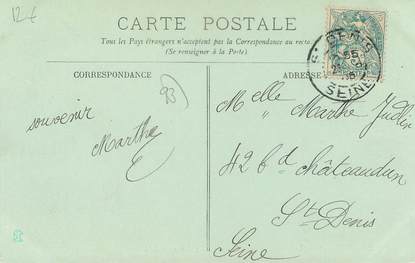 12 €
CARTE POSTALE
Tous les Pays étrangers n'acceptent pas la Correspondance au recto
(Se renseigner à la Poste)
CORRESPONDANCE
ADRESSE
93
souvenir
Marthe
Melle Marthe
42 Bd châteaudun
St Denis
Seine
ST DENIS
SEINE